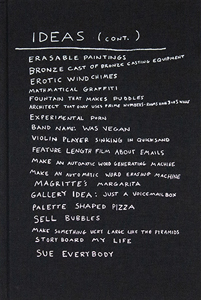 IDEAS (CONT.)
ERASABLE PAINTINGS
BRONZE CAST OF BRONZE CASTING EQUIPMENT
EROTIC WINDCHIMES
MATHMATICAL GRAFFITI
FOUNTAIN THAT MAKES PUDDLES
ARCHITECT THAT ONLY USES PRIME NUMBERS-
EXPERIMENTAL PORN
BAND NAME: WAS VEGAN
VIOLIN PLAYER SINKING IN QUICKSAND
FEATURE LENGTH FILM ABOUT EMAILS
MAKE AN AUTOMATIC WORD GENERATING MACHINE
MAKE AN AUTOMATIC WORD ERASING MACHINE
MAGRITTE'S MARGARITA
GALLERY IDEA: JUST A VOICEMAIL BOX
PALETTE SHAPED PIZZA
SELL BUBBLES
MAKE SOMETHING VERY LARGE LIKE THE PIRAMIDS
STORYBOARD MY LIFE
SUE EVERYBODY